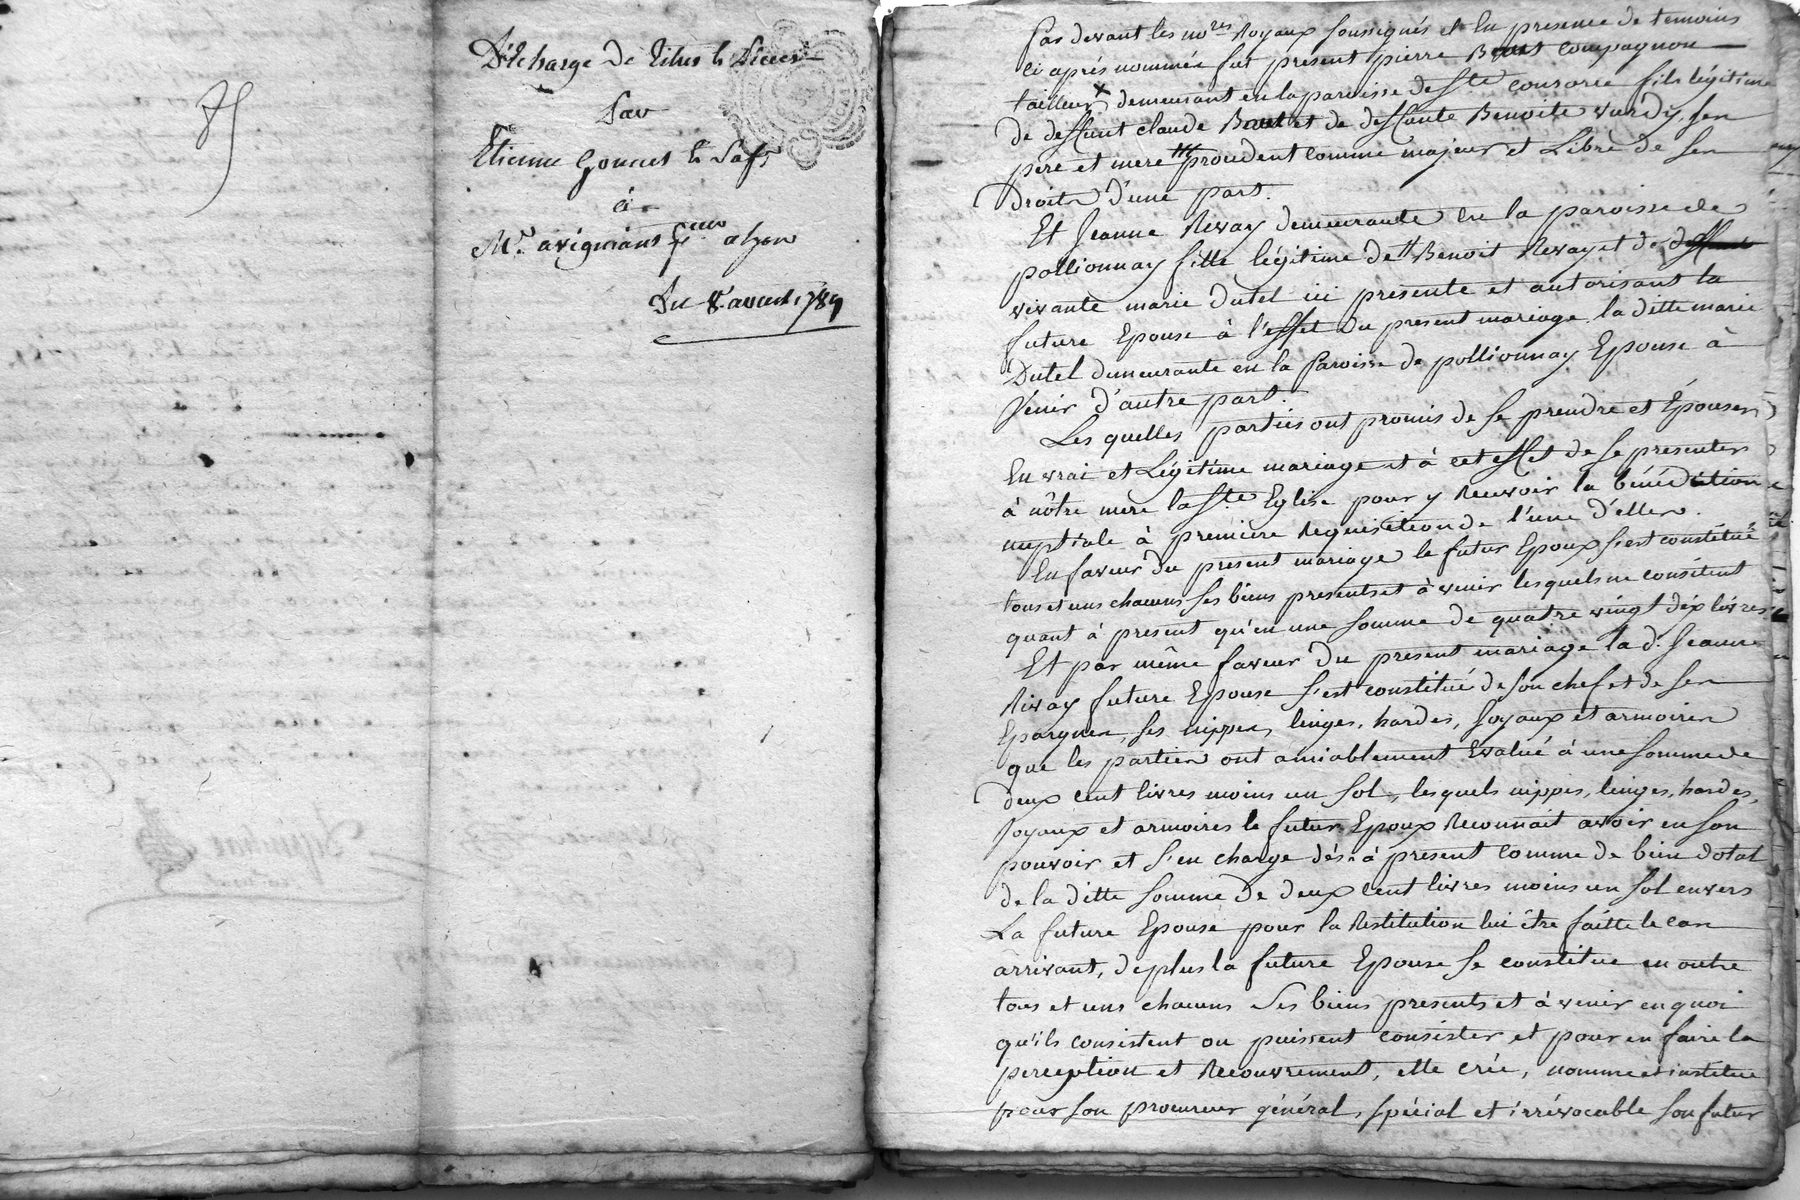 Décharge de titres & Pieces
Par
Etienne Goncet & Sa fe
à
Mr. avigniant pr. a lyon
Du 8. avril 1789
Par devant les nores Royaux soussignés et En presence de temoins
ci après nommés fut present pierre compagnon
tailleur demeurant en la paroisse de Ste consorce fils légitime
de deffunt claude et de deffunte Benoite vurdy, ses
pere et mere procedent comme majeur et Libre de ses
Droits d'une part.
Et Jeanne Revay demeurante en la paroisse de
pollionnay fille légitime de Benoit Revay et de
vivante marie Dutel ici presente et autorisant la
future Epouse à l'effet du present mariage. la ditte marie
Dutel demeurante en la Paroisse de pollionnay Epouse à
Venir d'autre part.
Les quelles parties ont promis de se prendre et Épouser
En vrai et Légitime mariage et à cet effet de se presenter
à nôtre mere la Ste. Eglise pour y recevoir la bénédiction
nuptiale à premiere Requisition de l'une d'elles.
En faveur du present mariage le futur Epoux s'est constitué
tous et uns chacuns ses biens presents et à venir lesquels ne consistent
quant à present qu'en une somme de quatre vingt dix livres
Et par même faveur du present mariage la d. Jeanne
Rivay future Epouse s'est constitué de son chef et de ses
Epargnes, ses nippes, linges, hardes, Joyaux et armoires
que les parties ont amiablement Evalué à une somme de
deux cent livres moins un sol, lesquels nippes, linges, hardes,
Joyaux et armoires le futur Epoux Reconnait avoir en son
pouvoir et s'en charge dès à présent comme de bien dotal
de la ditte somme de deux cent livres moins un sol envers
La future Epouse pour la Restitution lui être faitte le cas
arrivant, de plus la future Epouse se constitue en outre
tous et uns chacuns ses biens presents et à venir en quoi
qu'ils consistent ou puissent consister et pour en faire la
perception et Recouvrement, elle crée, nomme et institue
pour son procureur général, spécial et irrévocable son futur